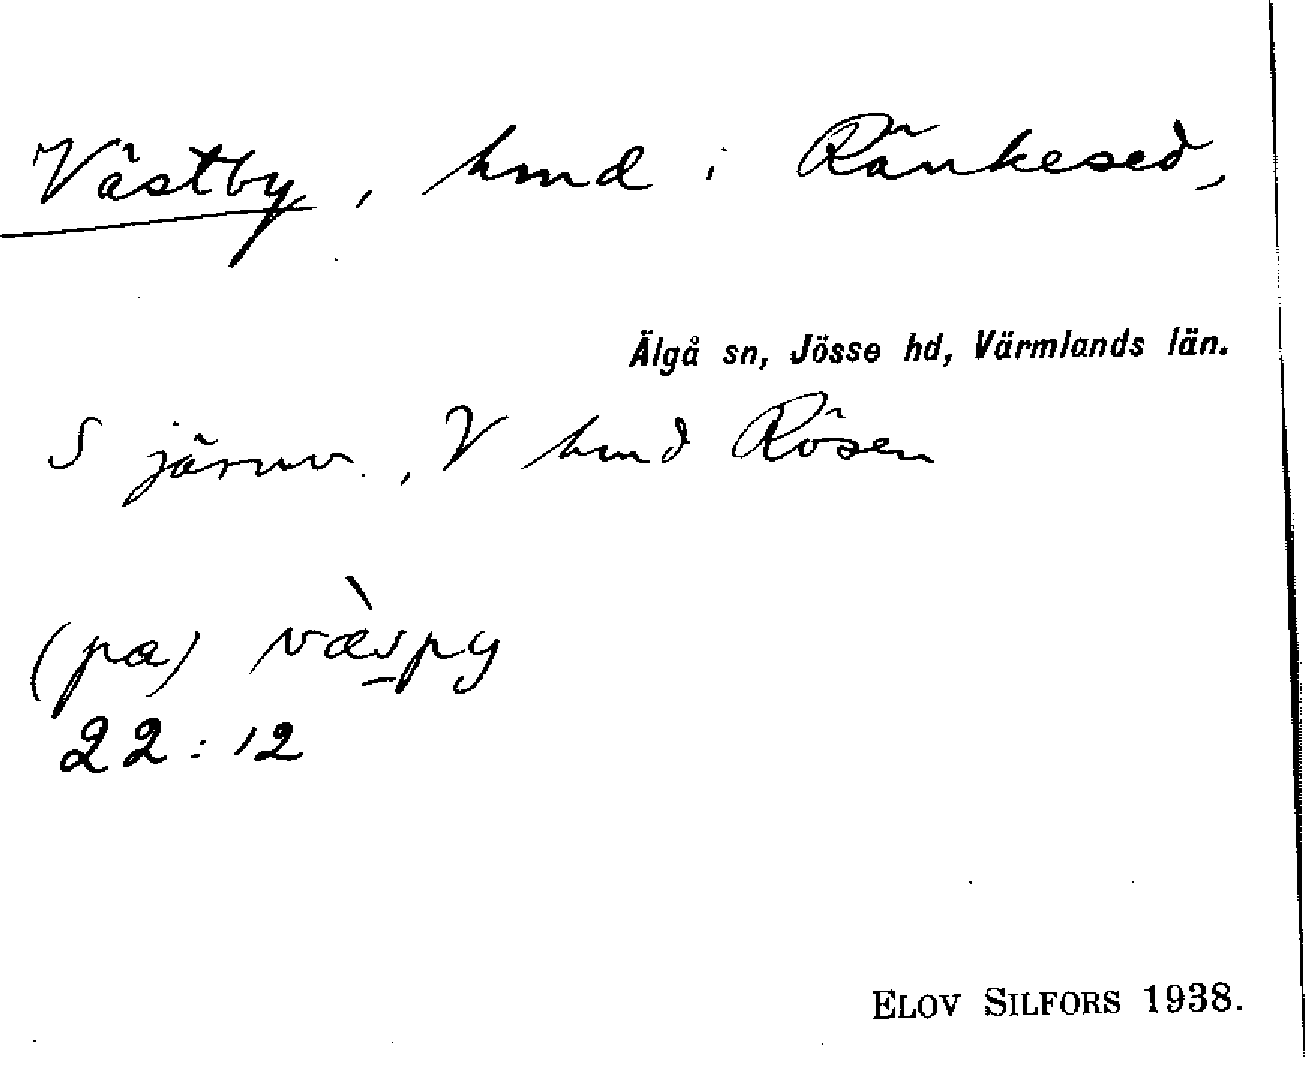 Västby, hmd i Ränkesed,
Älgå sn, Jösse hd, Värmlands län.
S järnv., V hmd Rösen
(pa) væ̀spy
22:12
ELOV SILFORS 1938.